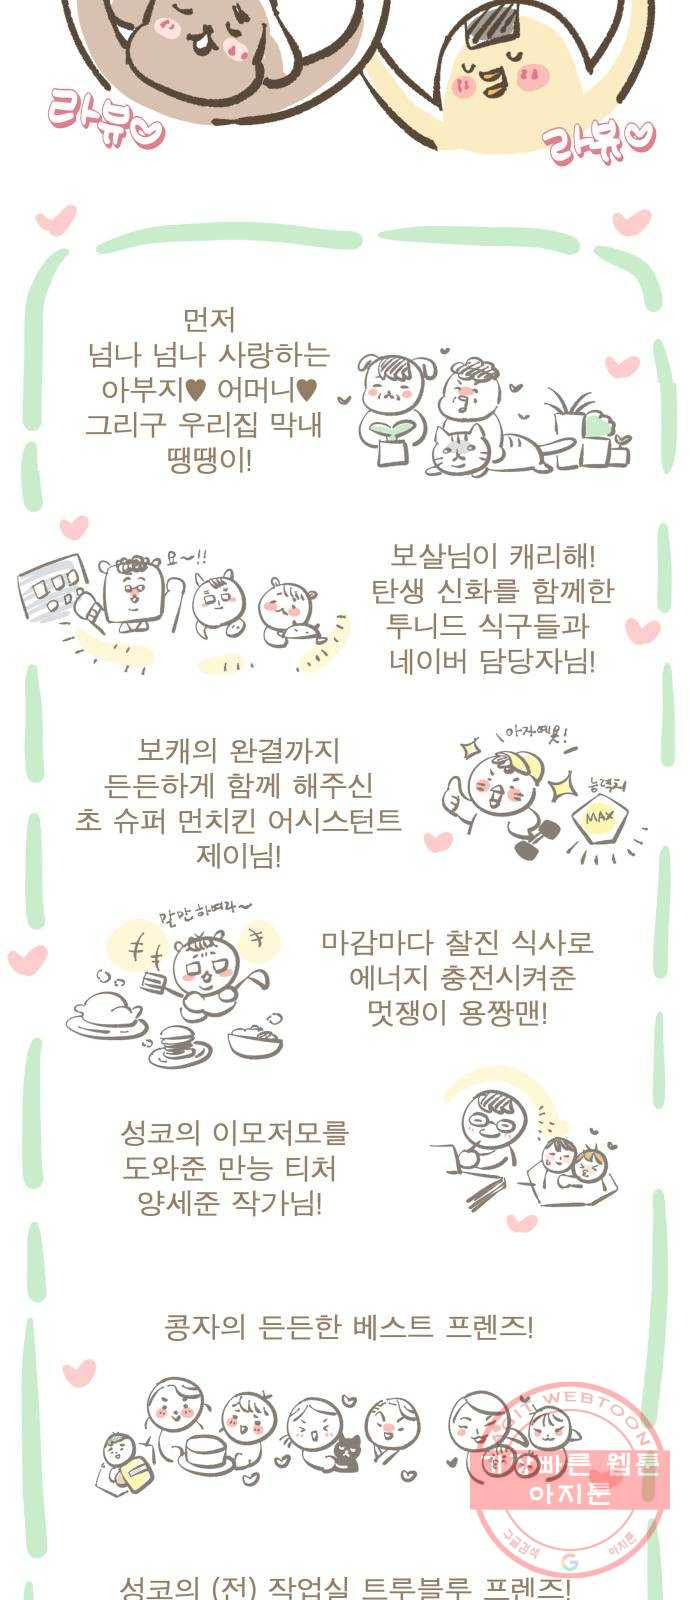 라뷰♡
라뷰♡
먼저
넘나 넘나 사랑하는
아부지♥ 어머니♥
그리구 우리집 막내
땡땡이!
요~!!
보살님이 캐리해!
탄생 신화를 함께한
투니드 식구들과
네이버 담당자님!
보캐의 완결까지
든든하게 함께 해주신
초 슈퍼 먼치킨 어시스턴트
제이님!
아자예옷!
능력치
MAX
말만하여라~
마감마다 찰진 식사로
에너지 충전시켜준
멋쟁이 용짱맨!
성코의 이모저모를
도와준 만능 티처
양세준 작가님!
콩자의 든든한 베스트 프렌즈!
WEBTOON
빠른 웹툰
아지툰
구글검색
아지툰
성코의 (전) 작업실 트루블루 프렌즈!